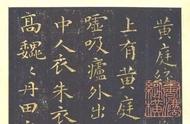 黄庭經
上有黄庭
嘘吸廬外出
中人衣朱衣
高魏〻丹田